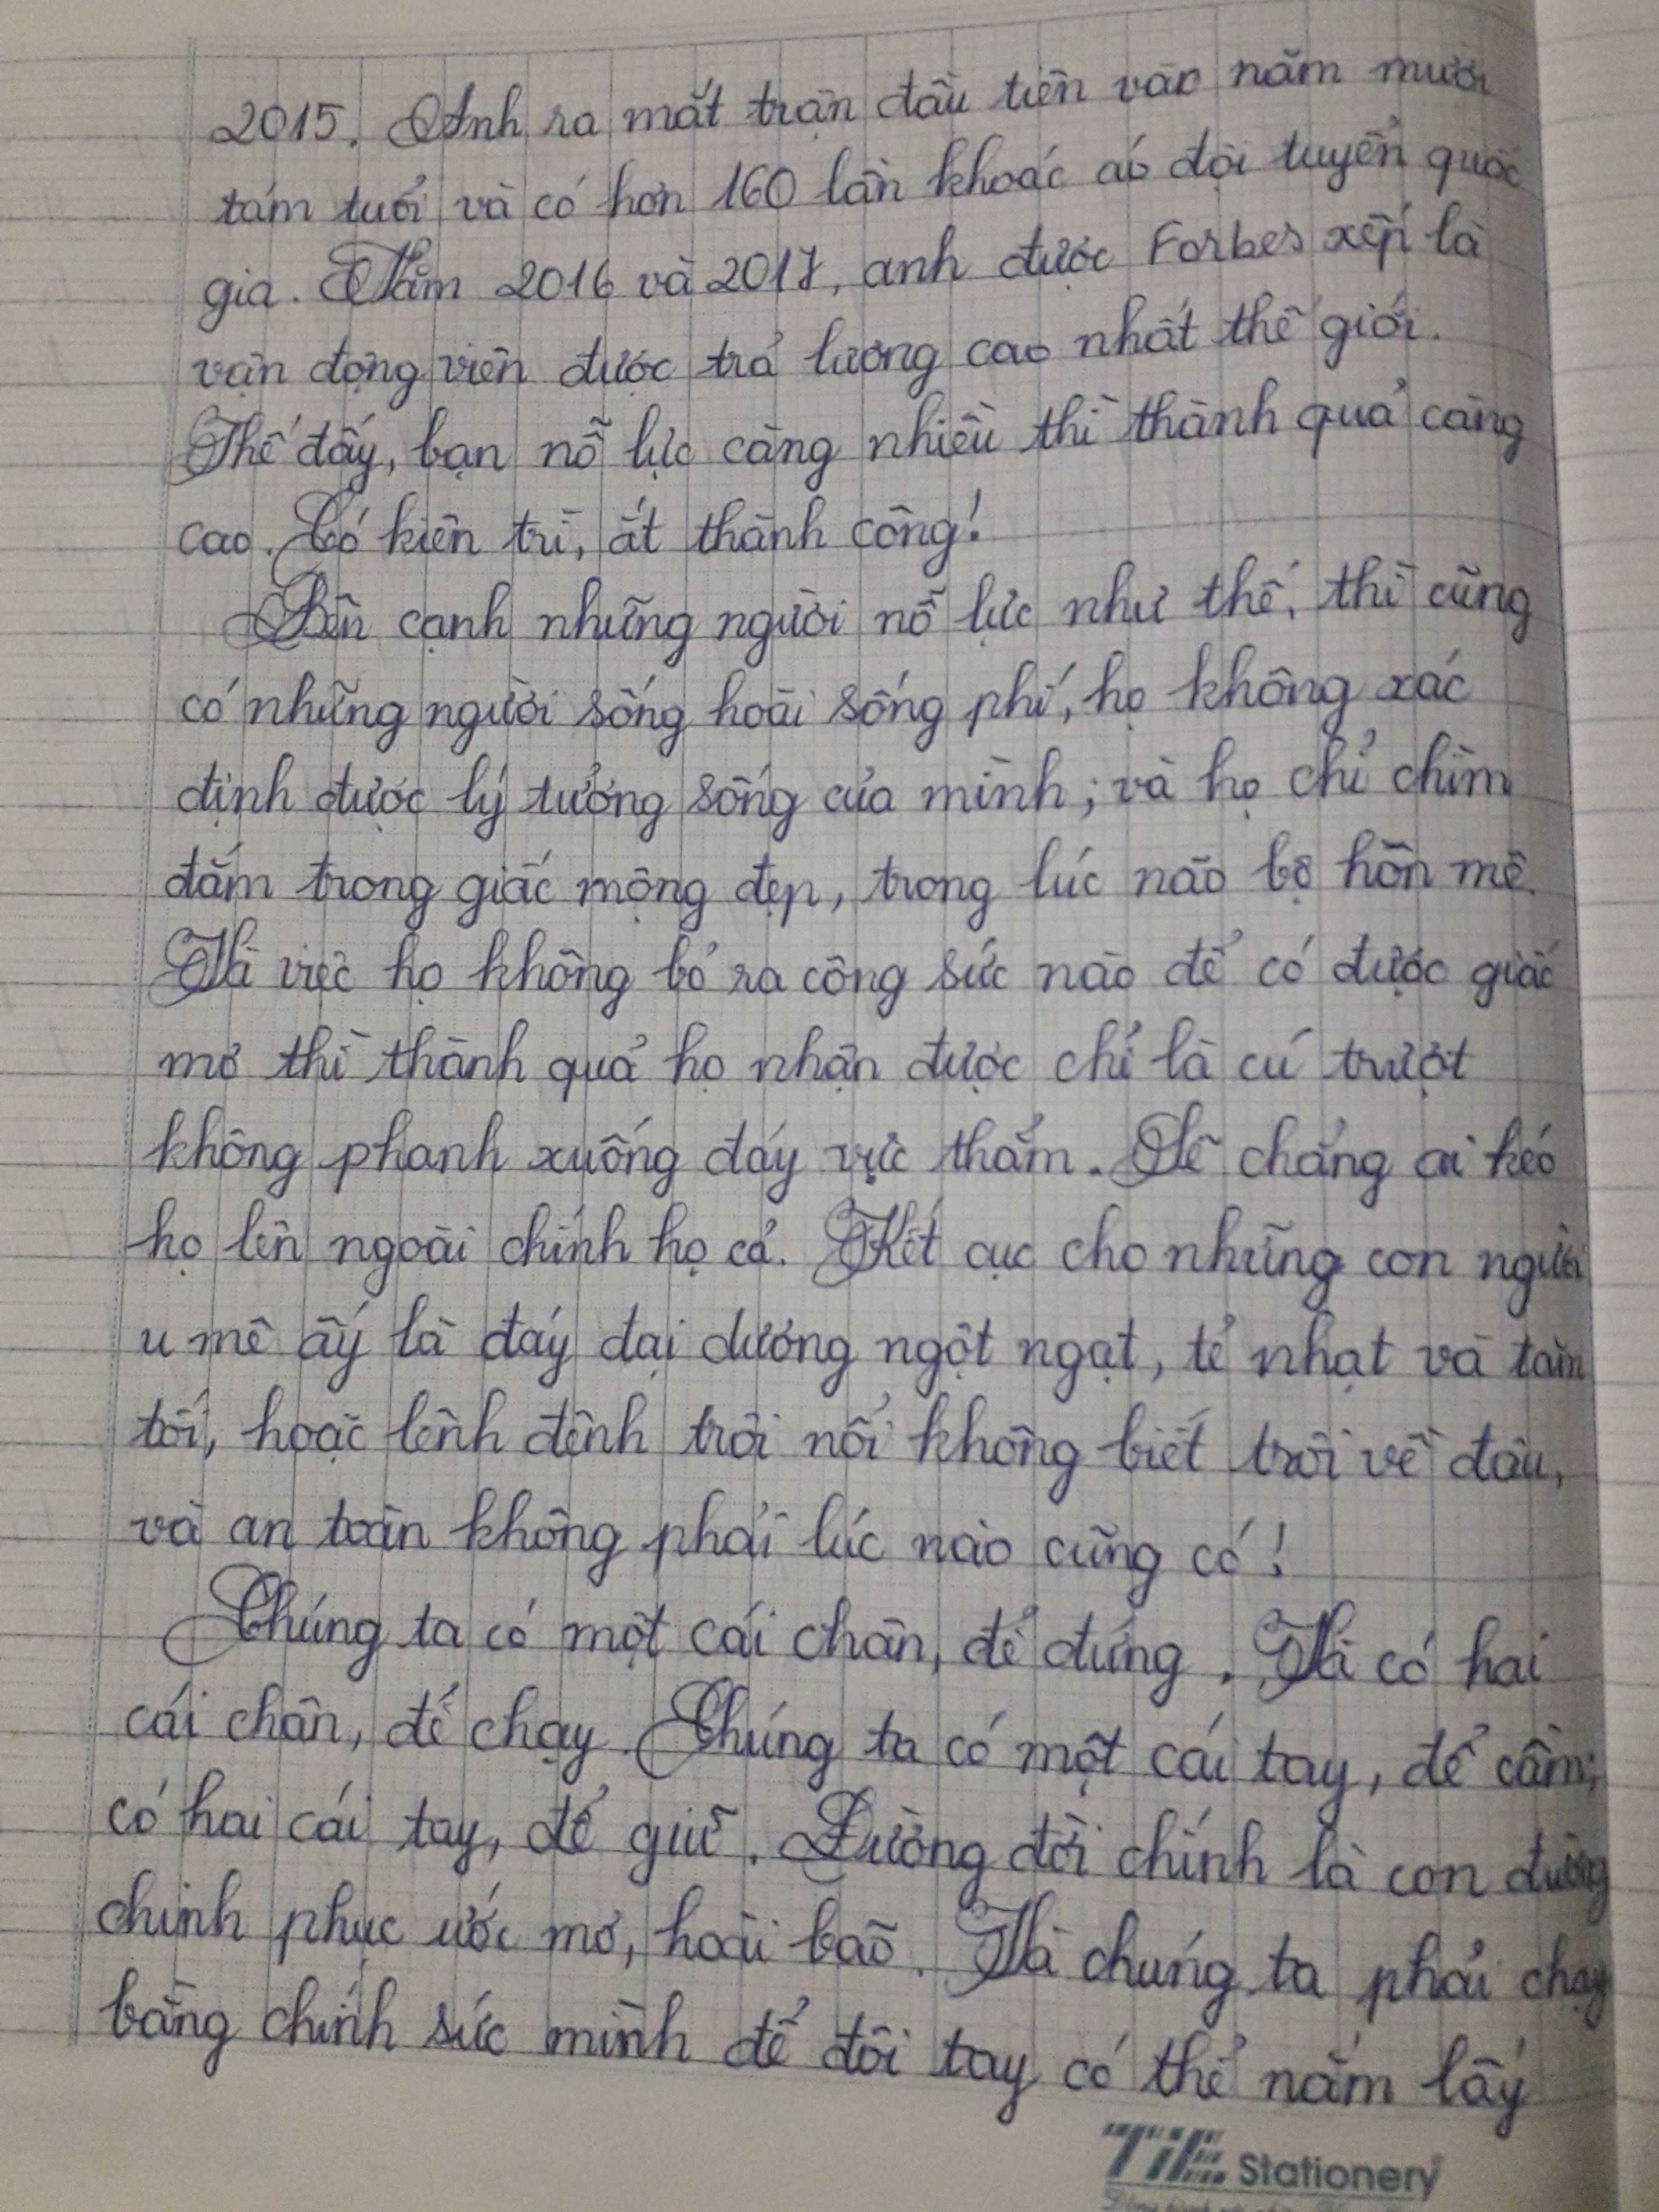 2015. Anh ra mắt trận đấu tiên vào năm mười
tám tuổi và có hơn 160 lần khoác áo đội tuyển quốc
gia. Năm 2016 và 2017, anh được Forbes xếp là
vận động viên được trả lương cao nhất thế giới.
Thế đấy, bạn nỗ lực càng nhiều thì thành quả càng
cao. Có kiên trì, ắt thành công!
Bên cạnh những người nỗ lực như thế, thì cũng
có những người sống hoài sống phí, họ không xác
định được lý tưởng sống của mình; và họ chỉ chìm
đắm trong giấc mộng đẹp, trong lúc não bộ hôn mê.
Và việc họ không bỏ ra công sức nào để có được giấc
mơ thì thành quả họ nhận được chỉ là cú trượt
không phanh xuống đáy vực thẳm. Sẽ chẳng ai kéo
họ lên ngoài chính họ cả. Kết cục cho những con người
u mê ấy là đáy đại dương ngột ngạt, tẻ nhạt và tăm
tối, hoặc lênh đênh trôi nổi không biết trôi về đâu,
và an toàn không phải lúc nào cũng có!
Chúng ta có một cái chân, để đứng. Và có hai
cái chân, để chạy. Chúng ta có một cái tay, để cầm;
có hai cái tay, để giữ. Đường đời chính là con đường
chinh phục ước mơ, hoài bão. Và chúng ta phải chạy
bằng chính sức mình để đôi tay có thể nắm lấy
TiE Stationery